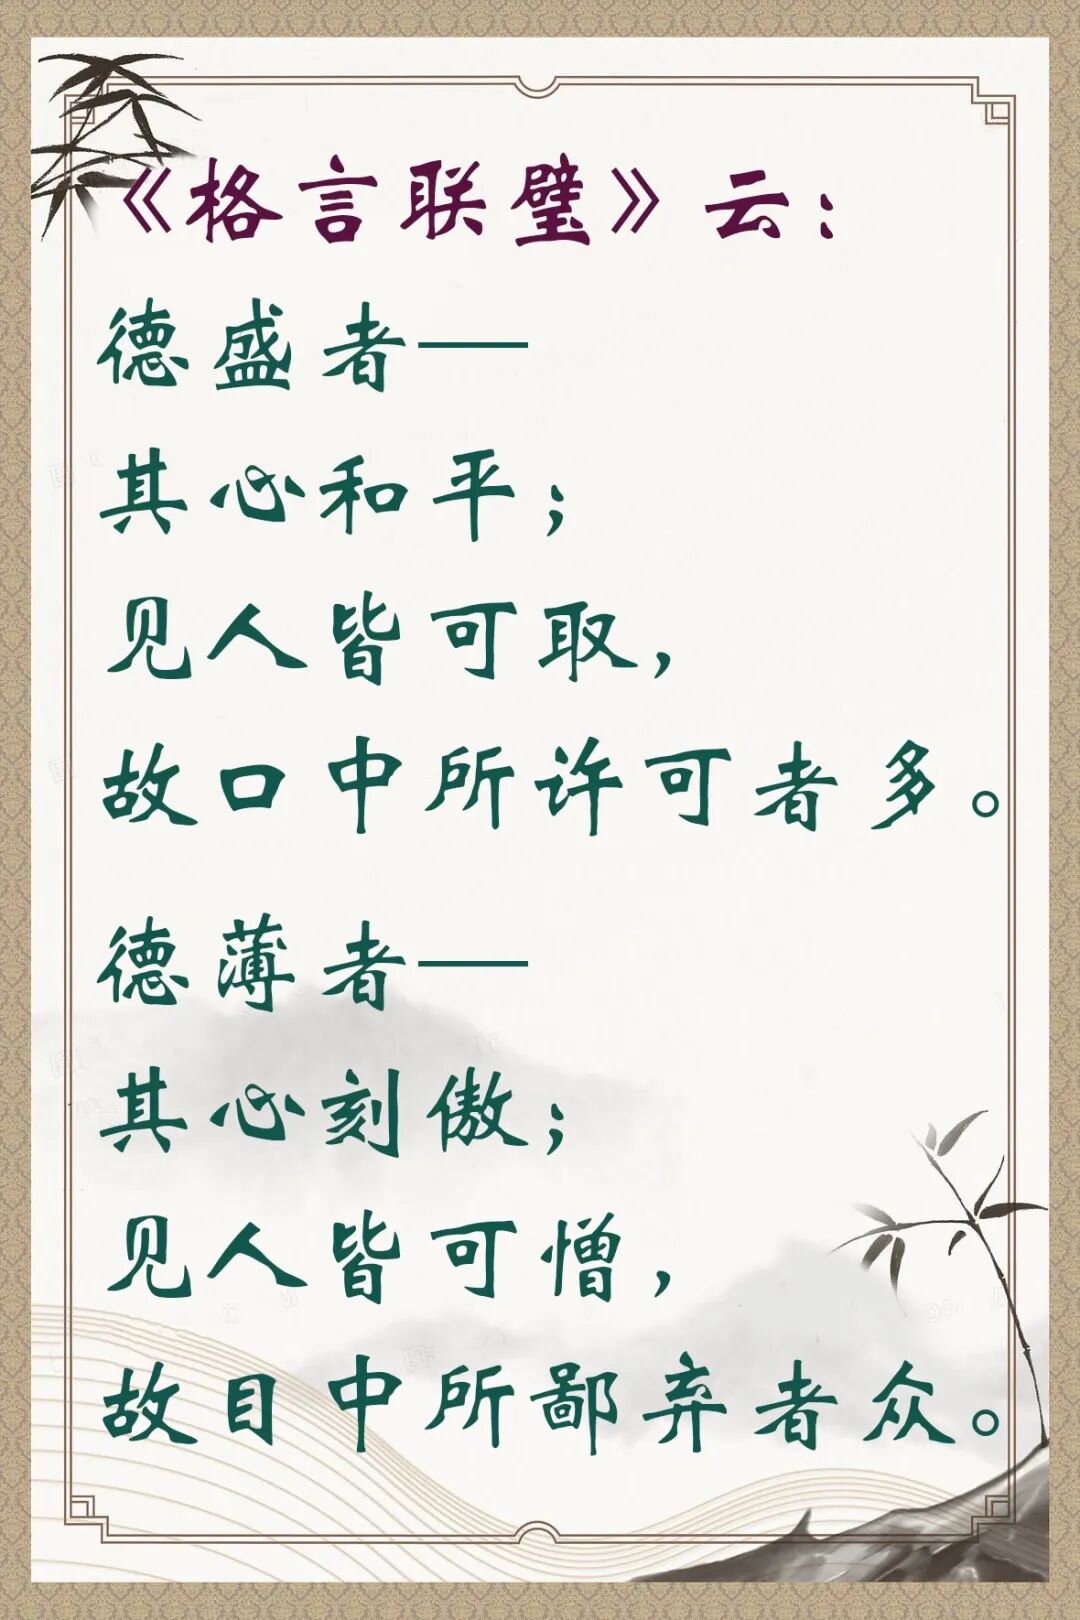 《格言联璧》云：
德盛者—
其心和平；
见人皆可取，
故口中所许可者多。
德薄者—
其心刻傲；
见人皆可憎，
故目中所鄙弃者众。